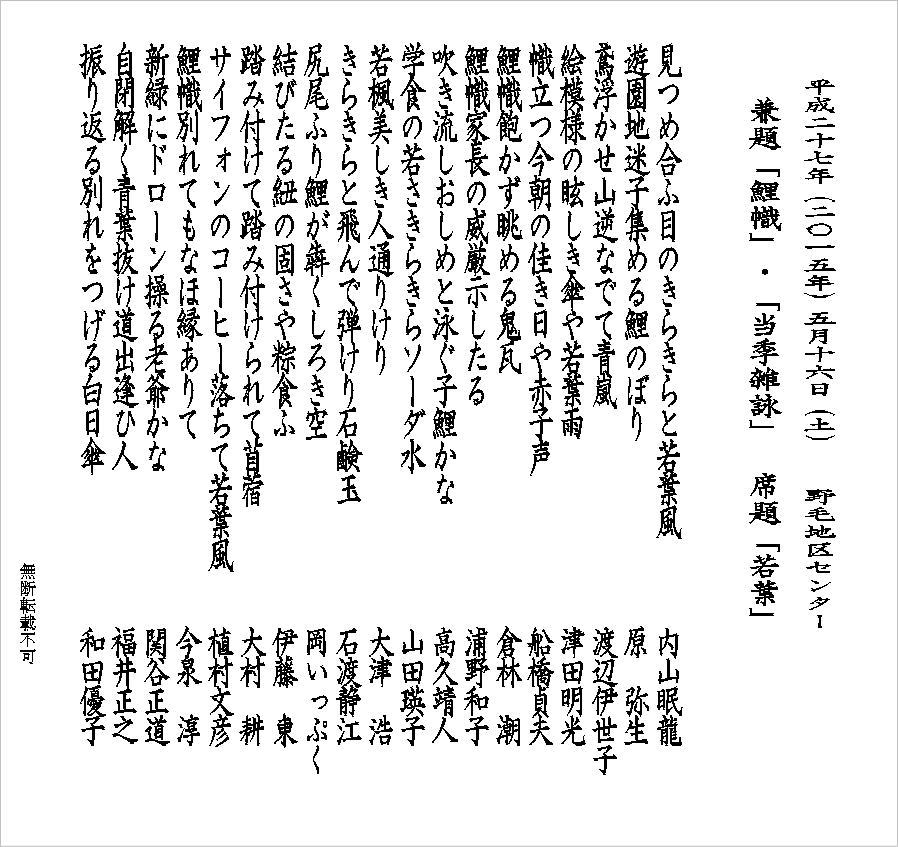 平成二十七年（二〇一五年）五月十六日（土）　野毛地区センター
兼題「鯉幟」・「当季雑詠」　席題「若葉」
見つめ合ふ目のきらきらと若葉風　内山眠龍
遊園地迷子集める鯉のぼり　原　弥生
鳶浮かせ山逆なでて青嵐　渡辺伊世子
絵模様の眩しき傘や若葉雨　津田明光
幟立つ今朝の佳き日や赤子声　船橋貞夫
鯉幟飽かず眺める鬼瓦　倉林　潮
鯉幟家長の威厳示したる　浦野和子
吹き流しおしめと泳ぐ子鯉かな　高久靖人
学食の若さきらきらソーダ水　山田瑛子
若楓美しき人通りけり　大津　浩
きらきらと飛んで弾けり石鹸玉　石渡静江
尻尾ふり鯉が犇くしろき空　岡いっぷく
結びたる紐の固さや粽食ふ　伊藤　東
踏み付けて踏み付けられて苜蓿　大村　耕
サイフォンのコーヒー落ちて若葉風　植村文彦
鯉幟別れてもなほ縁ありて　今泉　淳
新緑にドローン操る老爺かな　関谷正道
自閉解く青葉抜け道出逢ひ人　福井正之
振り返る別れをつげる白日傘　和田優子
無断転載不可